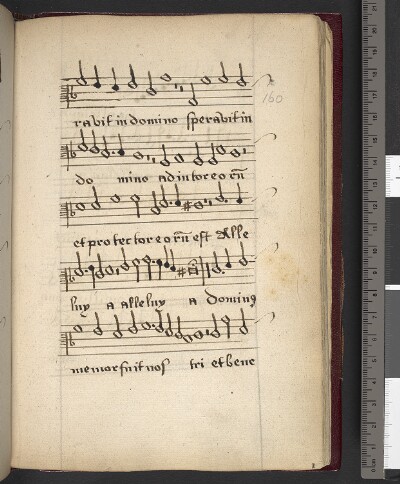 160
ravit in domino speravit in
do mino adiutor eorũ
et protector eorũ est Alle
luy a alleluy a Dominꝰ
memor fuit nos tri et bene